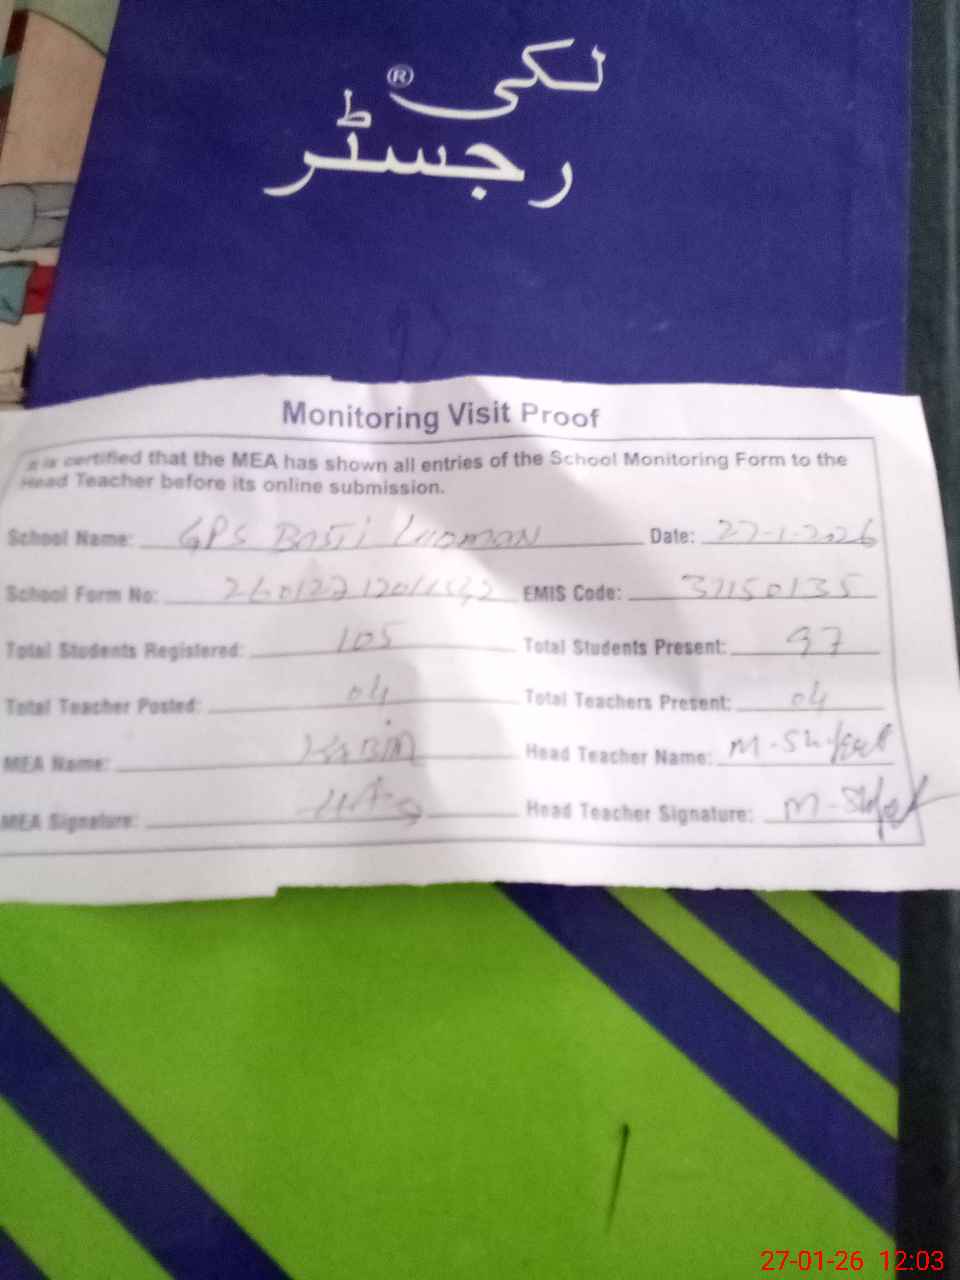 لکی ®
رجسٹر
Monitoring Visit Proof
It is certified that the MEA has shown all entries of the School Monitoring Form to the
Head Teacher before its online submission.
School Name: GPS Basti Date: 27-1-2026
School Form No: EMIS Code: 37150135
Total Students Registered: 105 Total Students Present: 97
Total Teacher Posted: 04 Total Teachers Present: 04
MEA Name: Head Teacher Name: M-Shafeek
MEA Signature: Head Teacher Signature: M-Shafeek
27-01-26 12:03